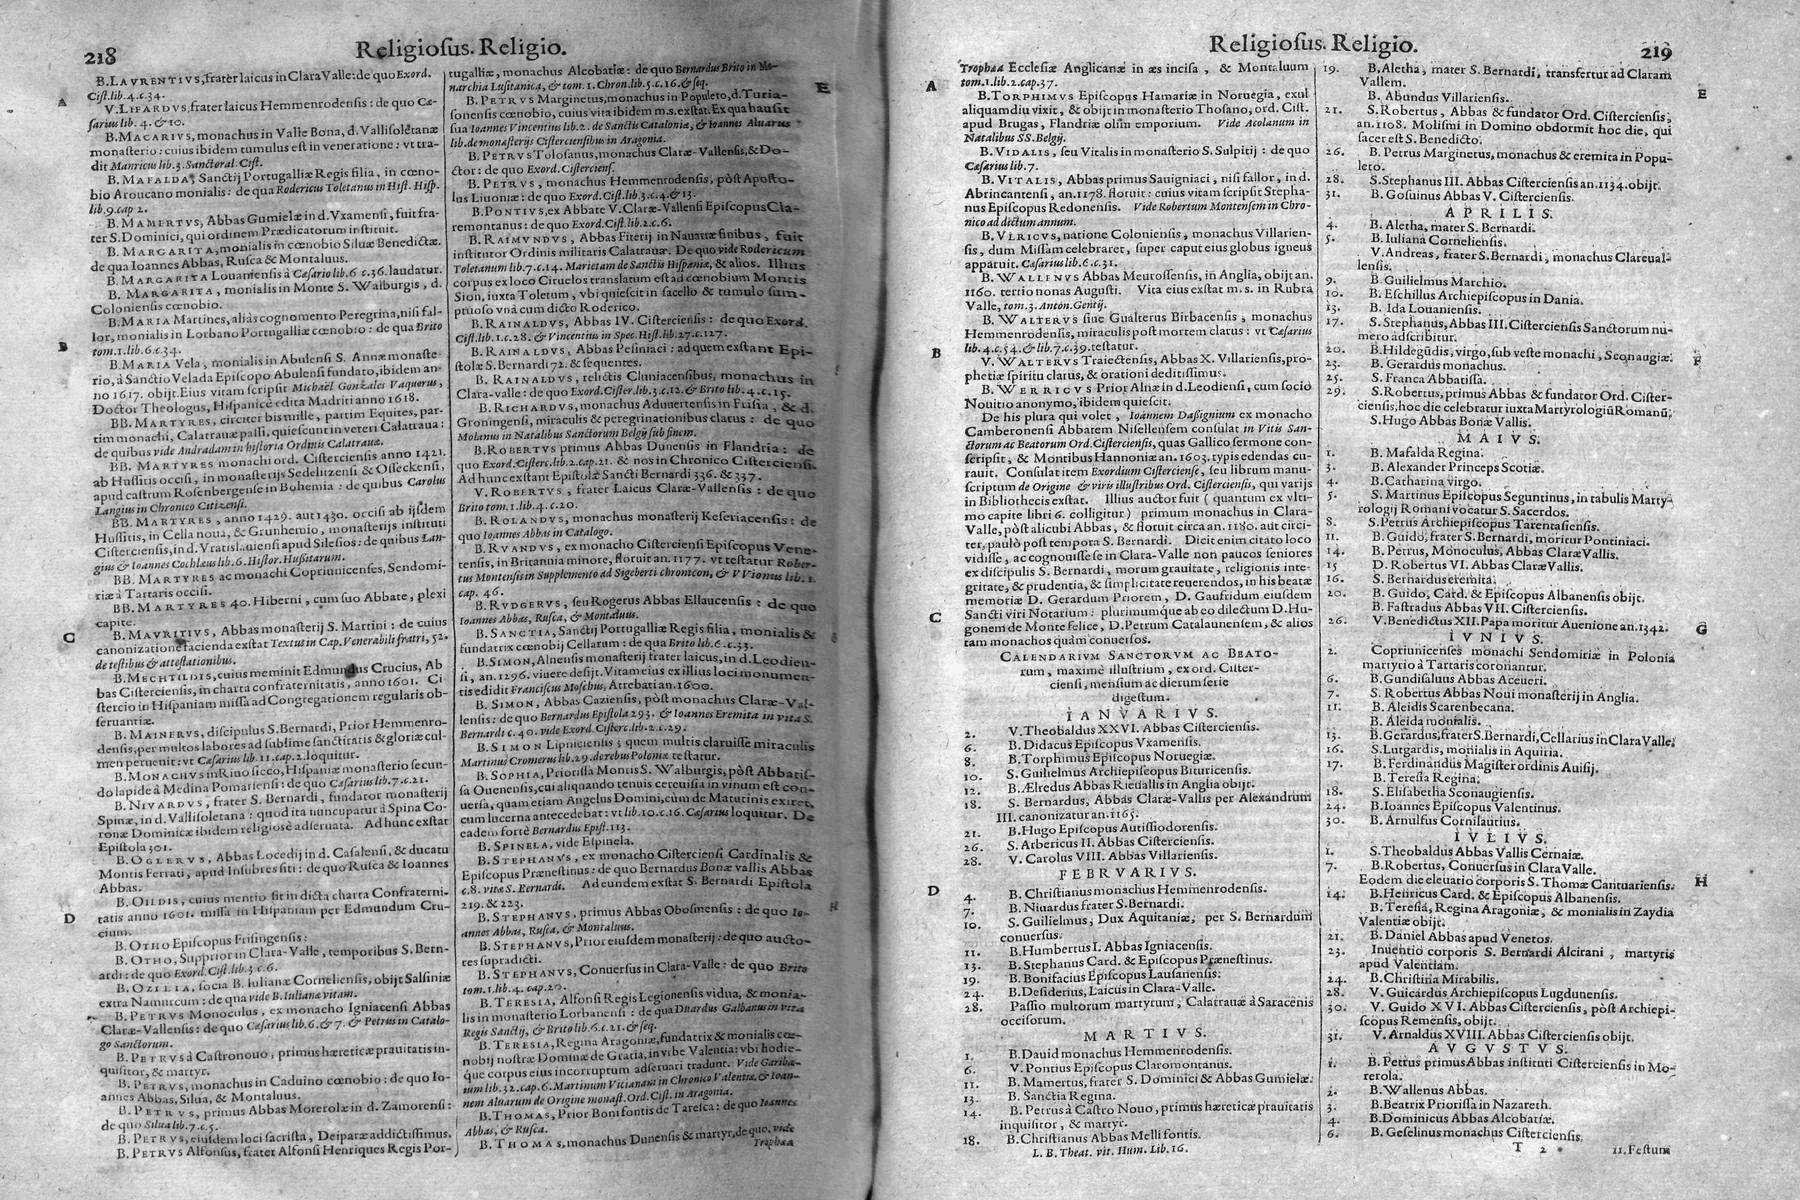 218
Religiosus. Religio.
B. LAVRENTIVS, frater laicus in Clara Valle: de quo Exord.
Cist. lib. 4. c. 34.
A
V. LIFARDVS, frater laicus Hemmenrodensis: de quo Cæ-
sarius lib. 4. & 10.
B. MACARIVS, monachus in Valle Bona, d. Vallisoletanæ
monasterio: cuius ibidem tumulus est in veneratione: vt tra-
dit Manricus lib. 3. Sanctoral. Cist.
B. MAFALDA, Sanctij Portugalliæ Regis filia, in cœno-
bio Aroucano monialis: de qua Rodericus Toletanus in Hist. Hisp.
lib. 9. cap 2.
B. MAMERTVS, Abbas Gumielæ in d. Vxamensi, fuit fra-
ter S. Dominici, qui ordinem Prædicatorum instituit.
B. MARGARITA, monialis in cœnobio Siluæ Benedictæ.
de qua Ioannes Abbas, Rusca & Montaluus.
B. MARGARITA Louaniensis à Cæsario lib. 6 c. 36. laudatur.
B. MARGARITA, monialis in Monte S. Walburgis, d.
Coloniensis cœnobio.
B. MARIA Martines, aliàs cognomento Peregrina, nisi fal-
lor, monialis in Lorbano Portugalliæ cœnobio: de qua Brito
tom. 1. lib. 6. c. 34.
B
B. MARIA Vela, monialis in Abulensi S. Annæ monaste-
rio, à Sanctio Velada Episcopo Abulensi fundato, ibidem an-
no 1617. obijt. Eius vitam scripsit Michaël Gonzales Vaquerus,
Doctor Theologus, Hispanicè edita Madriti anno 1618.
BB. MARTYRES, circiter bis mille, partim Equites, par-
tim monachi, Calatrauæ passi, quiescunt in veteri Calatraua:
de quibus vide Andradam in historia Ordinis Calatrauæ.
BB. MARTYRES monachi ord. Cisterciensis anno 1421.
ab Hussitis occisi, in monasterijs Sedelitzensi & Osseckensi,
apud castrum Rosenbergense in Bohemia: de quibus Carolus
Langius in Chronico Citizensi.
BB. MARTYRES, anno 1429. aut 1430. occisi ab ijsdem
Hussitis, in Cella noua, & Grunhemio, monasterijs instituti
Cisterciensis, in d. Vratislauiensi apud Silesios: de quibus Lan-
gius & Ioannes Cochlæus lib. 6. Histor. Hussitarum.
BB. MARTYRES ac monachi Copriunicenses, Sendomi-
riæ à Tartaris occisi.
BB. MARTYRES 40. Hiberni, cum suo Abbate, plexi
capite.
C
B. MAVRITIVS, Abbas monasterij S. Martini: de cuius
canonizatione facienda exstat Textus in Cap. Venerabili fratri, 52.
de testibus & attestationibus.
B. MECHTILDIS, cuius meminit Edmundus Crucius, Ab
bas Cisterciensis, in charta confraternitatis, anno 1601. Ci
stercio in Hispaniam missa ad Congregationem regularis ob-
seruantiæ.
B. MAINERVS, discipulus S. Bernardi, Prior Hemmenro-
densis, per multos labores ad sublime sanctitatis & gloriæ cul-
men peruenit: vt Cæsarius lib. 11. cap. 2. loquitur.
B. MONACHVS in Riuo sicco, Hispaniæ monasterio secun-
do lapide à Medina Pomariensi: de quo Cæsarius lib. 7. c. 21.
B. NIVARDVS, frater S. Bernardi, fundator monasterij
Spinæ, in d. Vallisoletana: quod ita nuncupatur à Spina Co-
ronæ Dominicæ ibidem religiosè adseruata. Ad hunc exstat
Epistola 301.
B. OGLERVS, Abbas Locedij in d. Casalensi, & ducatu
Montis Ferrati, apud Insubres siti: de quo Rusca & Ioannes
Abbas.
D
B. OILDIS, cuius mentio fit in dicta charta Confraterni-
tatis anno 1601. missa in Hispaniam per Edmundum Cru-
cium.
B. OTHO Episcopus Frisingensis:
B. OTHO, Supprior in Clara-Valle, temporibus S. Bern-
ardi: de quo Exord. Cist. lib. 3 c. 6.
B. OZILIA, socia B. Iulianæ Corneliensis, obijt Salsiniæ
extra Namurcum: de qua vide B. Iulianæ vitam.
B. PETRVS Monoculus, ex monacho Igniacensi Abbas
Claræ-Vallensis: de quo Cæsarius lib. 6. & 7. & Petrus in Catalo-
go Sanctorum.
B. PETRVS à Castronouo, primus hæreticæ prauitatis in-
quisitor, & martyr.
B. PETRVS, monachus in Caduino cœnobio: de quo Io-
annes Abbas, Silua, & Montaluus.
B. PETRVS, primus Abbas Morerolæ in d. Zamorensi:
de quo Silua lib. 7. c. 5.
B. PETRVS, eiusdem loci sacrista, Deiparæ addictissimus.
B. PETRVS Alfonsus, frater Alfonsi Henriques Regis Por-
tugalliæ, monachus Alcobatiæ: de quo Bernardus Brito in Mo-
narchia Lusitanica, & tom. 1. Chron. lib. 5. c. 16. & seq.
E
B. PETRVS Marginetus, monachus in Populeto, d. Turia-
sonensis cœnobio, cuius vita ibidem m.s. exstat. Ex qua hausit
sua Ioannes Vincentius lib. 2. de Sanctis Cataloniæ, & Ioannes Aluarus
lib. de monasterijs Cisterciensibus in Aragonia.
B. PETRVS Tolosanus, monachus Claræ-Vallensis, & Do-
ctor: de quo Exord. Cisterciens.
B. PETRVS, monachus Hemmenrodensis, pòst Aposto-
lus Liuoniæ: de quo Exord. Cist. lib. 3. c. 4. & 13.
B. PONTIVS, ex Abbate V. Claræ-Vallensi Episcopus Cla-
remontanus: de quo Exord. Cist. lib. 2. c. 6.
B. RAIMVNDVS, Abbas Fiterij in Nauarræ finibus, fuit
institutor Ordinis militaris Calatrauæ. De quo vide Rodericum
Toletanum lib. 7. c. 14. Marietam de Sanctis Hispaniæ, & alios. Illius
corpus ex loco Cituelos translatum est ad cœnobium Montis
Sion, iuxta Toletum, vbi quiescit in sacello & tumulo sum-
ptuoso vnà cum dicto Roderico.
B. RAINALDVS, Abbas IV. Cisterciensis: de quo Exord.
Cist. lib. 1. c. 28. & Vincentius in Spec. Hist. lib. 27. c. 127.
B. RAINALDVS, Abbas Pesiniaci: ad quem exstant Epi-
stolæ S. Bernardi 72. & sequentes.
B. RAINALDVS, relictis Cluniacensibus, monachus in
Clara-valle: de quo Exord. Cister. lib. 3. c. 12. & Brito lib. 4. c. 15.
B. RICHARDVS, monachus Aduuertensis in Frisia, & d.
Groningensi, miraculis & peregrinationibus clarus: de quo
Molanus in Natalibus Sanctorum Belgij sub finem.
B. ROBERTVS primus Abbas Dunensis in Flandria: de
quo Exord. Cisterc. lib. 2. cap. 21. & nos in Chronico Cisterciensi.
Ad hunc exstant Epistolæ Sancti Bernardi 336. & 337.
V. ROBERTVS, frater Laicus Claræ-Vallensis: de quo
Brito tom. 1. lib. 4. c. 20.
B. ROLANDVS, monachus monasterij Keseriacensis: de
quo Ioannes Abbas in Catalogo.
B. RVANDVS, ex monacho Cisterciensi Episcopus Vene-
tensis, in Britannia minore, floruit an. 1177. vt testatur Rober-
tus Montensis in Supplemento ad Sigeberti chronicon, & VVionus lib. 1.
cap. 46.
B. RVDGERVS, seu Rogerus Abbas Ellaucensis: de quo
Ioannes Abbas, Rusca, & Montaluus.
B. SANCTIA, Sanctij Portugalliæ Regis filia, monialis &
fundatrix cœnobij Cellarum: de qua Brito lib. 6. c. 33.
B. SIMON, Alnensis monasterij frater laicus, in d. Leodien-
si, an. 1296. viuere desijt. Vitam eius ex illius loci monumen-
tis edidit Franciscus Moschus, Atrebati an. 1600.
B. SIMON, Abbas Caziensis, pòst monachus Claræ-Val-
lensis: de quo Bernardus Epistola 293. & Ioannes Eremita in vita S.
Bernardi c. 40. vide Exord. Cisterc. lib. 2. c. 29.
B. SIMON Lipnicensis; quem multis claruisse miraculis
Martinus Cromerus lib. 29. de rebus Poloniæ testatur.
B. SOPHIA, Priorissa Montis S. Walburgis, pòst Abbatis-
sa Ouenensis, cui aliquando tenuis cereuisia in vinum est con-
uersa, quam etiam Angelus Domini, cùm de Matutinis exiret,
cum lucerna antecedebat: vt lib. 10. c. 16. Cæsarius loquitur. De
eadem fortè Bernardus Epist. 113.
B. SPINELA, vide Espinela.
B. STEPHANVS, ex monacho Cisterciensi Cardinalis &
Episcopus Prænestinus: de quo Bernardus Bonæ vallis Abbas
c. 8. vitæ S. Bernardi. Ad eundem exstat S. Bernardi Epistola
219. & 223.
B. STEPHANVS, primus Abbas Obosmensis: de quo Io-
annes Abbas, Rusca, & Montaluus.
B. STEPHANVS, Prior eiusdem monasterij: de quo aucto-
res supradicti.
B. STEPHANVS, Conuersus in Clara-Valle: de quo Brito
tom. 1. lib. 4. cap. 20.
B. TERESIA, Alfonsi Regis Legionensis vidua, & monia-
lis in monasterio Lorbanensi: de qua Duardus Galbanus in vita
Regis Sanctij, & Brito lib. 6. c. 21. & seq.
B. TERESIA, Regina Aragoniæ, fundatrix & monialis cœ-
nobij nostræ Dominæ de Gratia, in vrbe Valentia: vbi hodie-
que corpus eius incorruptum adseruari tradunt. Vide Garibæ-
ium lib. 32. cap. 6. Martinum Vicianam in Chronico Valentiæ, & Ioan-
nem Aluarum de Origine monast. Ord. Cist. in Aragonia.
B. THOMAS, Prior Bonifontis de Taresca: de quo Ioannes
Abbas, & Rusca.
B. THOMAS, monachus Dunensis & martyr, de quo. vide
Trophæa
Religiosus. Religio.
219
A
Trophæa Ecclesiæ Anglicanæ in æs incisa, & Montaluum
tom. 1. lib. 2. cap. 37.
B. TORPHIMVS Episcopus Hamariæ in Noruegia, exul
aliquamdiu vixit, & obijt in monasterio Thosano, ord. Cist.
apud Brugas, Flandriæ olim emporium. Vide Molanum in
Natalibus SS. Belgij.
B. VIDALIS, seu Vitalis in monasterio S. Sulpitij: de quo
Cæsarius lib. 7.
B. VITALIS, Abbas primus Sauigniaci, nisi fallor, in d.
Abrincantensi, an. 1178. floruit: cuius vitam scripsit Stepha-
nus Episcopus Redonensis. Vide Robertum Montensem in Chro-
nico ad dictum annum.
B. VLRICVS, natione Coloniensis, monachus Villarien-
sis, dum Missam celebraret, super caput eius globus igneus
apparuit. Cæsarius lib. 6. c. 31.
B. WALLENVS Abbas Meurossensis, in Anglia, obijt an.
1160. tertio nonas Augusti. Vita eius exstat m.s. in Rubra
Valle, tom. 3. Anton. Gentij.
B. WALTERVS siue Gualterus Birbacensis, monachus
Hemmenrodensis, miraculis post mortem clarus: vt Cæsarius
B
lib. 4. c. 54. & lib. 7. c. 39. testatur.
V. WALTERVS Traiectensis, Abbas X. Villariensis, pro-
phetiæ spiritu clarus, & orationi deditissimus.
B. WERRICVS Prior Alnæ in d. Leodiensi, cum socio
Nouitio anonymo, ibidem quiescit.
De his plura qui volet, Ioannem Dassignium ex monacho
Camberonensi Abbatem Nisellensem consulat in Vitis San-
ctorum ac Beatorum Ord. Cisterciensis, quas Gallico sermone con-
scripsit, & Montibus Hannoniæ an. 1603. typis edendas cu-
rauit. Consulat item Exordium Cisterciense, seu librum manu-
scriptum de Origine & viris illustribus Ord. Cisterciensis, qui varijs
in Bibliothecis exstat. Illius auctor fuit (quantum ex vlti-
mo capite libri 6. colligitur) primum monachus in Clara-
Valle, pòst alicubi Abbas, & floruit circa an. 1180. aut circi-
ter, paulò post tempora S. Bernardi. Dicit enim citato loco
vidisse, ac cognouisse se in Clara-Valle non paucos seniores
ex discipulis S. Bernardi, morum grauitate, religionis inte-
gritate, & prudentia, & simplicitate reuerendos, in his beatæ
memoriæ D. Gerardum Priorem, D. Gaufridum eiusdem
C
Sancti viri Notarium: plurimumque ab eo dilectum D. Hu-
gonem de Monte felice, D. Petrum Catalaunensem, & alios
tam monachos quàm conuersos.
CALENDARIVM SANCTORVM AC BEATO-
rum, maximè illustrium, ex ord. Cister-
ciensi, mensium ac dierum serie
digestum.
IANVARIVS.
2. V. Theobaldus XXVI. Abbas Cisterciensis.
6. B. Didacus Episcopus Vxamensis.
8. B. Torphimus Episcopus Noruegiæ.
10. S. Guilielmus Archiepiscopus Bituricensis.
12. B. Ælredus Abbas Rieuallis in Anglia obijt.
18. S. Bernardus, Abbas Claræ-Vallis per Alexandrum
III. canonizatur an. 1165.
21. B. Hugo Episcopus Autissiodorensis.
26. S. Arbericus II. Abbas Cisterciensis.
28. V. Carolus VIII. Abbas Villariensis.
FEBRVARIVS.
D
4. B. Christianus monachus Hemmenrodensis.
7. B. Niuardus frater S. Bernardi.
10. S. Guilielmus, Dux Aquitaniæ, per S. Bernardum
conuersus.
11. B. Humbertus I. Abbas Igniacensis.
13. B. Stephanus Card. & Episcopus Prænestinus.
19. B. Bonifacius Episcopus Lausanensis.
24. B. Desiderius, Laicus in Clara-Valle.
28. Passio multorum martyrum, Calatrauæ à Saracenis
occisorum.
MARTIVS.
1. B. Dauid monachus Hemmenrodensis.
6. V. Pontius Episcopus Claromontanus.
11. B. Mamertus, frater S. Dominici & Abbas Gumielæ.
13. B. Sanctia Regina.
14. B. Petrus à Castro Nouo, primus hæreticæ prauitatis
inquisitor, & martyr.
18. B. Christianus Abbas Mellifontis.
L. B. Theat. vit. Hum. Lib. 16.
19. B. Aletha, mater S. Bernardi, transfertur ad Claram
Vallem.
E
B. Abundus Villariensis.
21. S. Robertus, Abbas & fundator Ord. Cisterciensis,
an. 1108. Molismi in Domino obdormit hoc die, qui
sacer est S. Benedicto.
26. B. Petrus Marginetus, monachus & eremita in Popu-
leto.
28. S. Stephanus III. Abbas Cisterciensis an. 1134. obijt.
31. B. Gosuinus Abbas V. Cisterciensis.
APRILIS.
4. B. Aletha, mater S. Bernardi.
5. B. Iuliana Corneliensis.
V. Andreas, frater S. Bernardi, monachus Clareual-
lensis.
9. B. Guilielmus Marchio.
10. B. Eschillus Archiepiscopus in Dania.
13. B. Ida Louaniensis.
17. S. Stephanus, Abbas III. Cisterciensis Sanctorum nu-
mero adscribitur.
20. B. Hildegūdis, virgo, sub veste monachi, Sconaugiæ.
F
23. B. Gerardus monachus.
25. S. Franca Abbatissa.
29. S. Robertus, primus Abbas & fundator Ord. Cister-
ciensis, hoc die celebratur iuxta Martyrologiū Romanū.
S. Hugo Abbas Bonæ Vallis.
MAIVS.
1. B. Mafalda Regina.
3. B. Alexander Princeps Scotiæ.
4. B. Catharina virgo.
5. S. Martinus Episcopus Seguntinus, in tabulis Marty-
rologij Romani vocatur S. Sacerdos.
8. S. Petrus Archiepiscopus Tarentasiensis.
11. B. Guido, frater S. Bernardi, moritur Pontiniaci.
14. B. Petrus, Monoculus, Abbas Claræ Vallis.
15 D. Robertus VI. Abbas Claræ Vallis.
16. S. Bernardus eremita.
20. B. Guido, Card. & Episcopus Albanensis obijt.
B. Fastradus Abbas VII. Cisterciensis.
26. V. Benedictus XII. Papa moritur Auenione an. 1342.
G
IVNIVS.
2. Copriunicenses monachi Sendomiriæ in Polonia
martyrio à Tartaris coronantur.
6. B. Gundisaluus Abbas Aceueri.
7. S. Robertus Abbas Noui monasterij in Anglia.
11. B. Aleidis Scarenbecana.
B. Aleida monialis.
13. B. Gerardus, frater S. Bernardi, Cellarius in Clara Valle.
16. S. Lutgardis, monialis in Aquiria.
17. B. Ferdinandus Magister ordinis Auisij.
B. Teresia Regina.
18. S. Elisabetha Sconaugiensis.
24. B. Ioannes Episcopus Valentinus.
30. B. Arnulfus Cornilautius.
IVLIVS.
1. S. Theobaldus Abbas Vallis Cernaiæ.
7. B. Robertus, Conuersus in Clara Valle.
Eodem die eleuatio corporis S. Thomæ Cantuariensis.
H
14. B. Henricus Card. & Episcopus Albanensis.
B. Teresia, Regina Aragoniæ, & monialis in Zaydia
Valentiæ obijt.
21. B. Daniel Abbas apud Venetos.
23. Inuentio corporis S. Bernardi Alcirani, martyris
apud Valentiam.
24. B. Christina Mirabilis.
28. V. Guicardus Archiepiscopus Lugdunensis.
30. V. Guido XVI. Abbas Cisterciensis, pòst Archiepi-
scopus Remensis, obijt.
31. V. Arnaldus XVIII. Abbas Cisterciensis obijt.
AVGVSTVS.
1. B. Petrus primus Abbas instituti Cisterciensis in Mo-
rerola.
2. B. Wallenus Abbas.
3. B. Beatrix Priorissa in Nazareth.
4. B. Dominicus Abbas Alcobatiæ.
6. B. Geselinus monachus Cisterciensis.
T 2
11. Festum